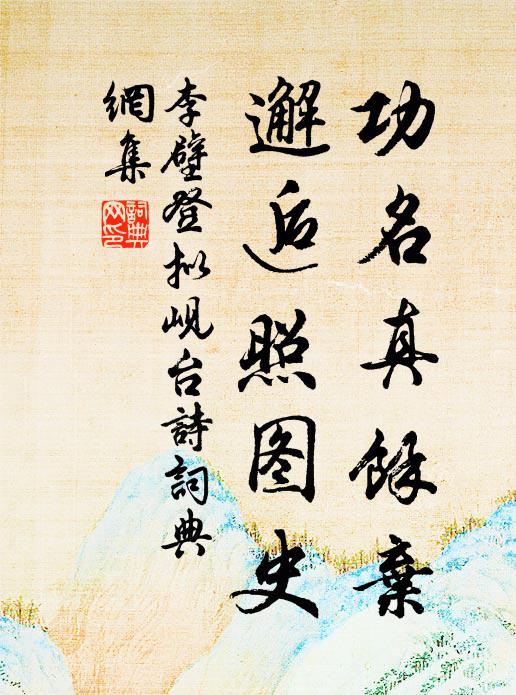 功名真餘棄
邂逅照图史
李壁登拟岘台詩詞典
網集
詞典
网印